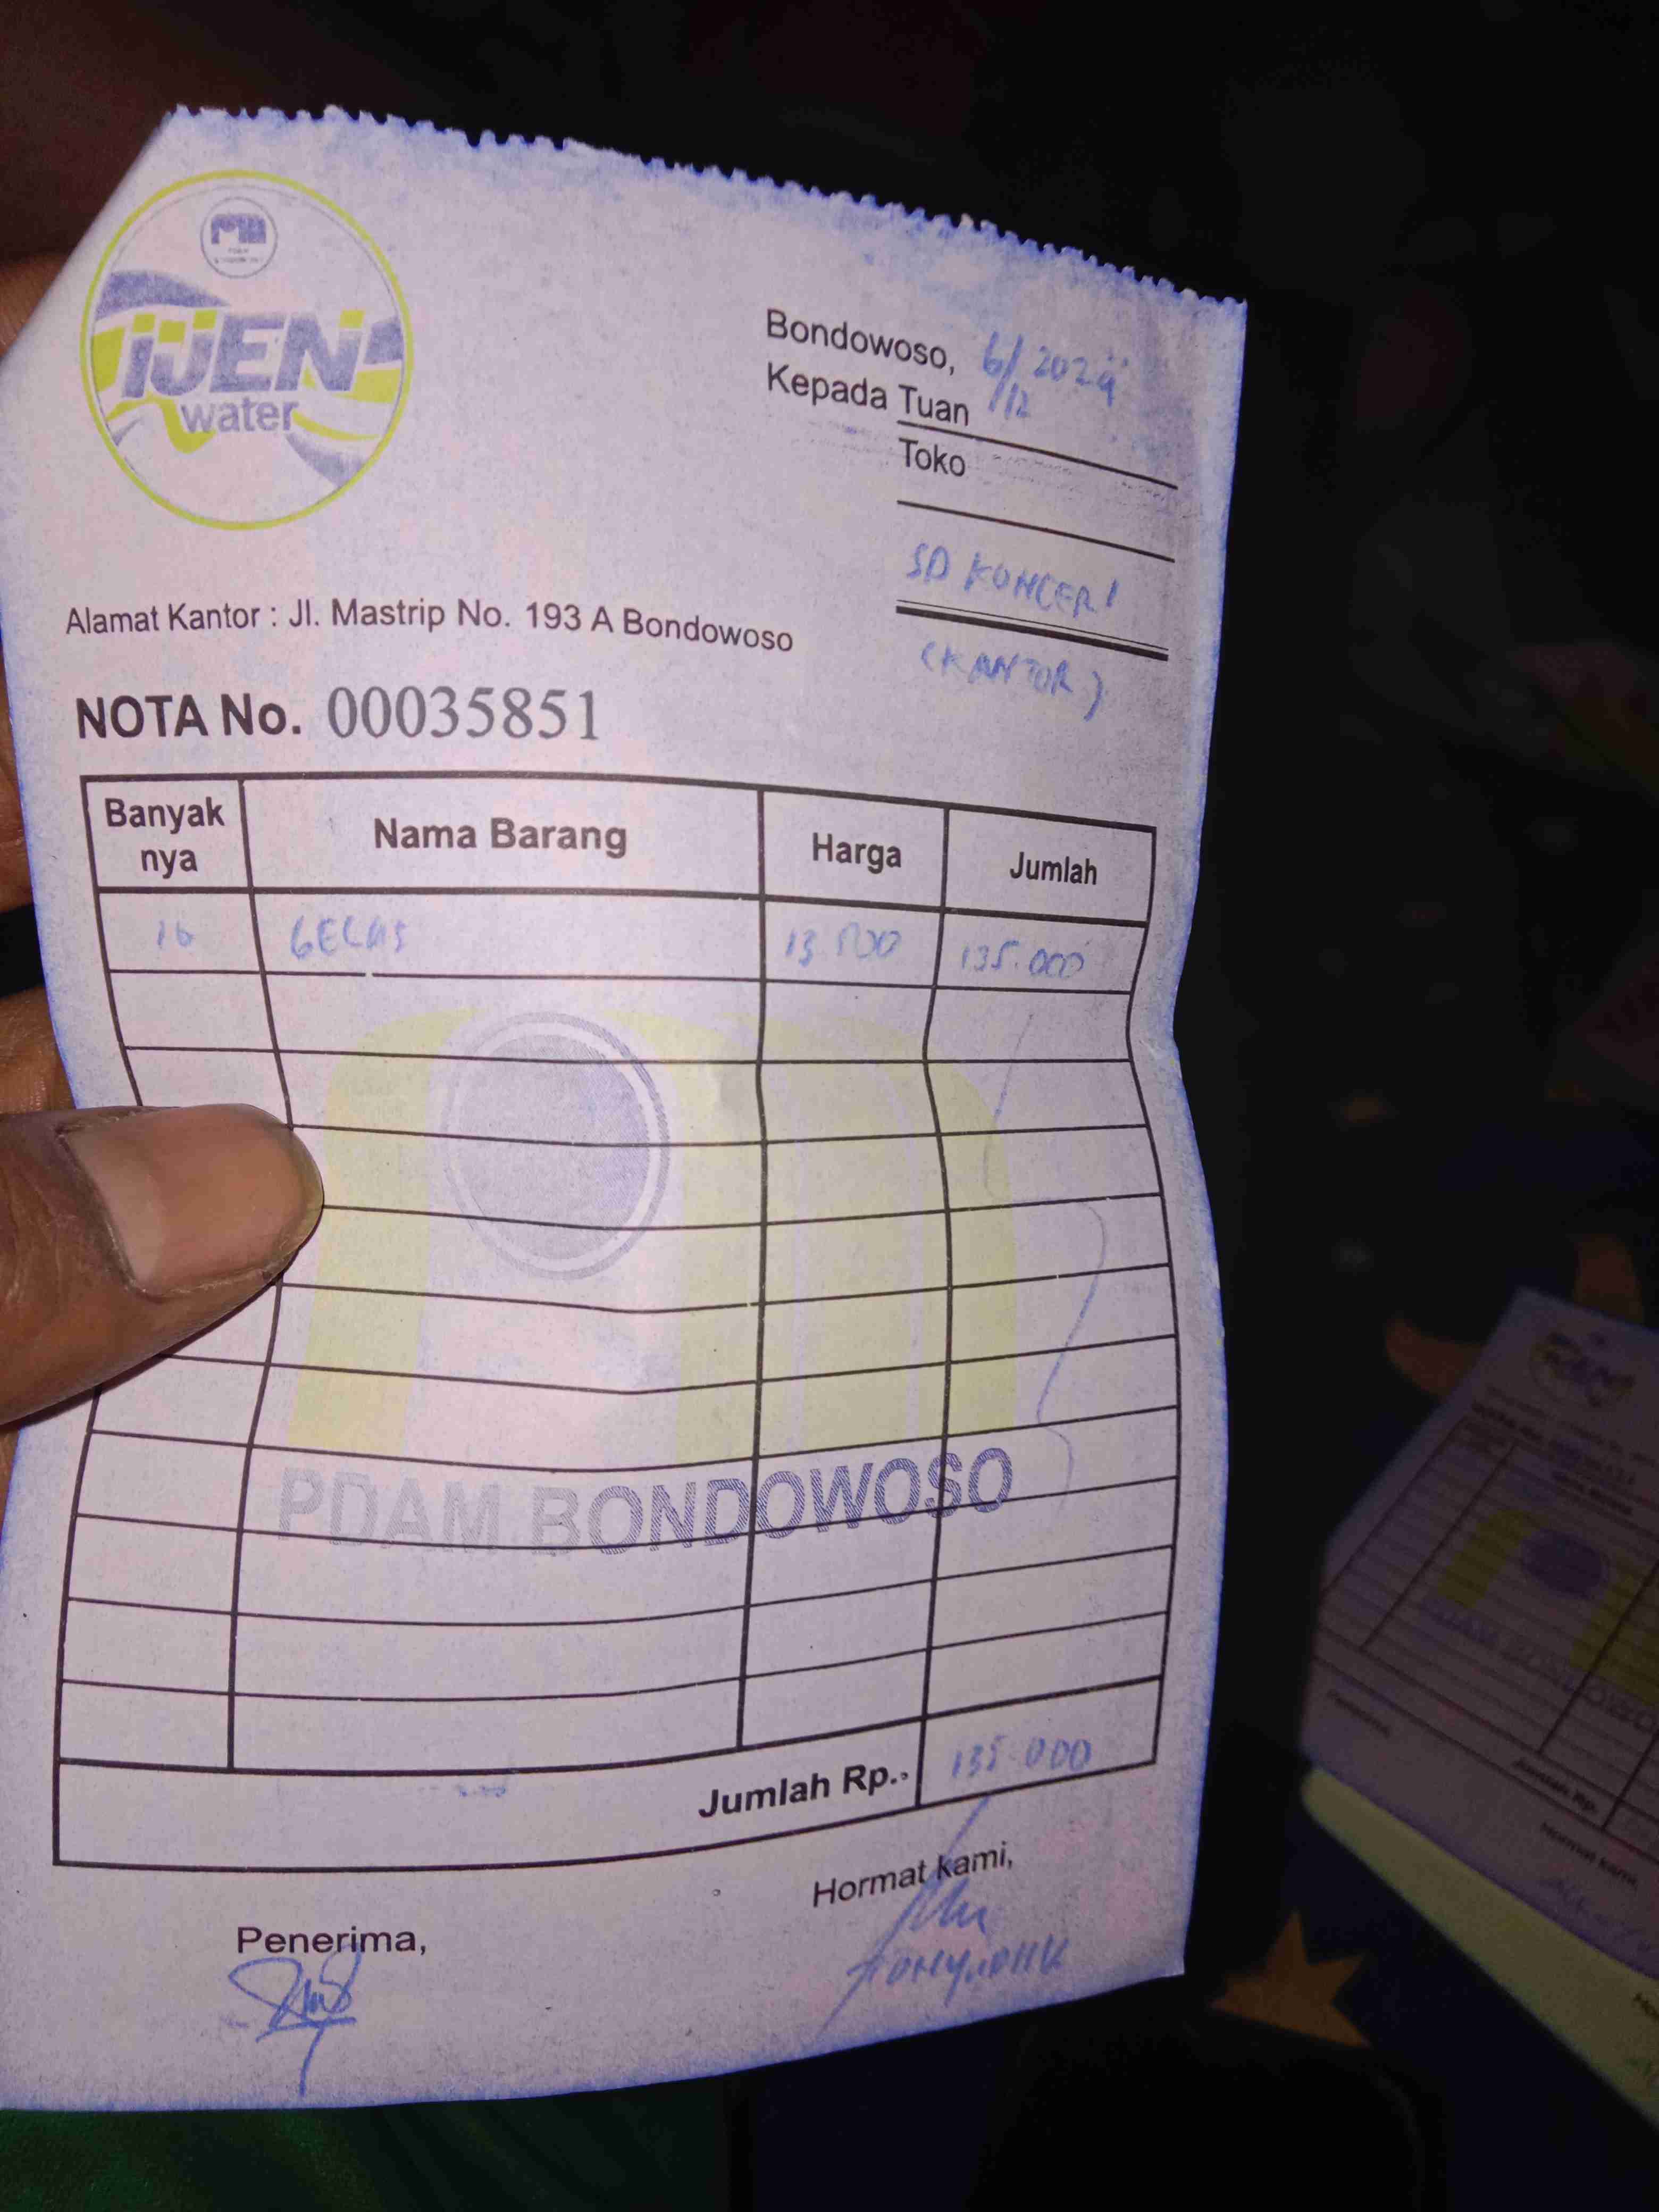 iJEN
water
Bondowoso, 6/12 2024
Kepada Tuan
Toko
SD KONCER 1
(KANTOR)
Alamat Kantor : Jl. Mastrip No. 193 A Bondowoso
NOTA No. 00035851
Banyak nya Nama Barang Harga Jumlah
10 GELAS 13.500 135.000
PDAM BONDOWOSO
Jumlah Rp. 135.000
Hormat kami,
Penerima,